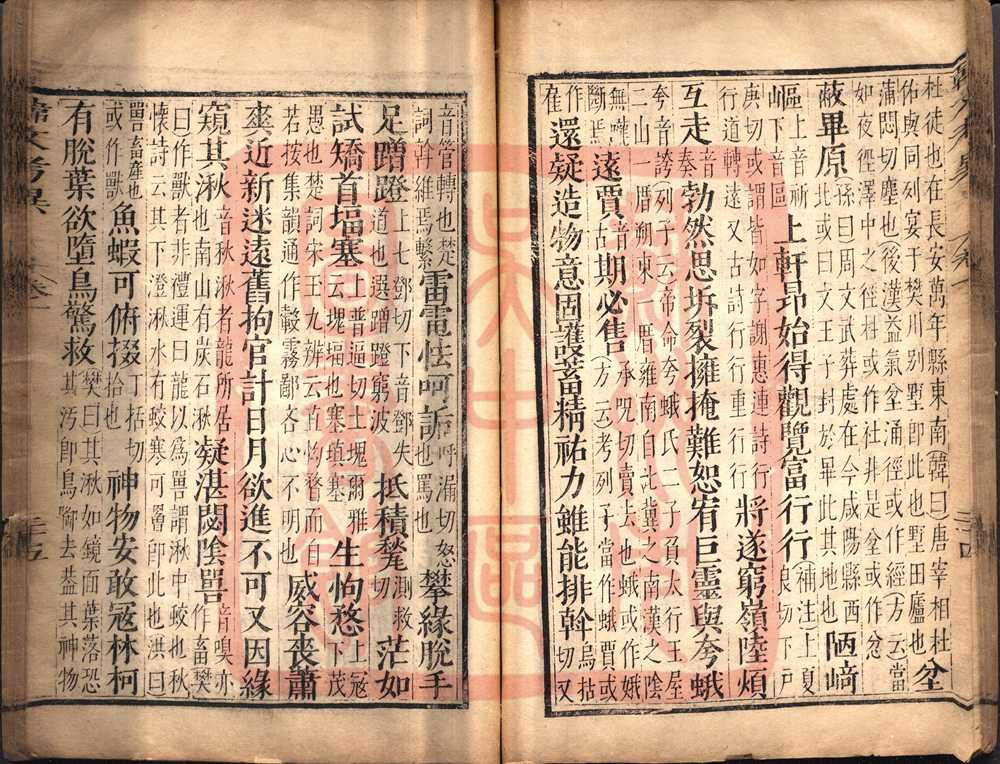 杜徒也在長安萬年縣東南(韓曰)唐宰相杜
佑與同列宴于樊川别墅即此也墅田廬也坌
蒲悶切塵也(後漢)益氣坌涌徑或作經(方云)當
如夜徑澤中之徑杜或作社非是坌或作忿
蔽畢原孫曰周文武葬處在今咸陽縣西
北或曰文王子封於畢此其地也陋﨑
嶇上音祈下音區上軒昻始得觀覽富行行(補注)上夏庚切下戶
行道轉遠又古詩行行重行行將遂窮嶺陸煩
互走音奏勃然思坼裂擁掩難恕宥巨靈與夸蛾
夸音誇列子云帝命夸蛾氏二子負太行王屋
二山一厝朔東一厝雍南自此冀之南漢之陰
無隴斷焉遠賈音古期必售承呪切賣去也蛾或作娥
(方云)考列子當作蛾賈或
作隺還疑造物意固護蓄精祐力雖能排斡烏括切又
音管轉也楚詞斡維焉繫雷電怯呵詬呼漏切怒也罵也攀緣脫手
足蹭蹬上七鄧切下音鄧失道也選蹭蹬窮波抵積甃測救切茫如
試矯首堛塞上普逼切土塊爾雅云塊堛也塞填塞生怐愗上冦下茂
愚也楚詞宋玉九辨云直怐愗而自
若按集韻通作瞉霧鄙吝心不明也威容喪蕭
爽近新迷遠舊拘官計日月欲進不可又因緣
窺其湫音秋湫者龍所居也南山有炭石湫凝湛閟陰嘼音嗅亦作畜樊
曰作獸者非禮運曰龍以爲嘼謂湫中蛟也秋
懷詩云其下澄湫水有蛟寒可罾即此也洪曰
嘼畜產也或作獸魚蝦可俯掇丁括切拾也神物安敢冦林柯
有脫葉欲墮鳥驚救樊曰其湫如鏡面葉落恐其汚即鳥㘅去益其神物
韓文考異
卷一
三十四
三十五